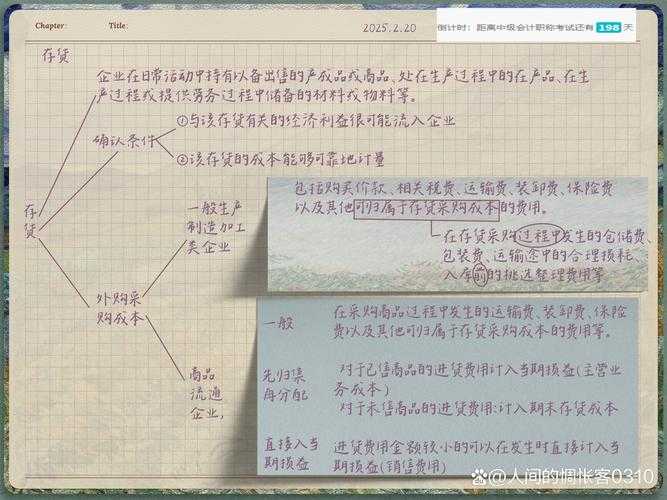 Chapter:
Title:
2025.2.20
倒计时：距离中级会计职称考试还有 198 天
存货
企业在日常活动中持有以备出售的产成品或商品、处在生产过程中的在产品、在生
产过程或提供劳务过程中储备的材料或物料等。
确认条件
①与该存货有关的经济利益很可能流入企业
②该存货的成本能够可靠地计量
存
货
外购采
购成本
一般生产
制造加工
类企业
包括购买价款、相关税费、运输费、装卸费、保险费
以及其他可归属于存货采购成本的费用。
在存货采购过程中发生的仓储费、
包装费、运输途中的合理损耗、
入库前的挑选整理费用等
商品
流通
企业,
一般
在采购商品过程中发生的运输费、装卸费、保险
费以及其他可归属于存货采购成本的费用等。
先归集
再分配
对于已售商品的进货费用计入当期损益(主营业
务成本)
对于未售商品的进货费用:计入期末存货成本
直接入当
期损益
进货费用金额较小的可以在发生时直接计入当
期损益(销售费用)
@人间的惆怅客0310